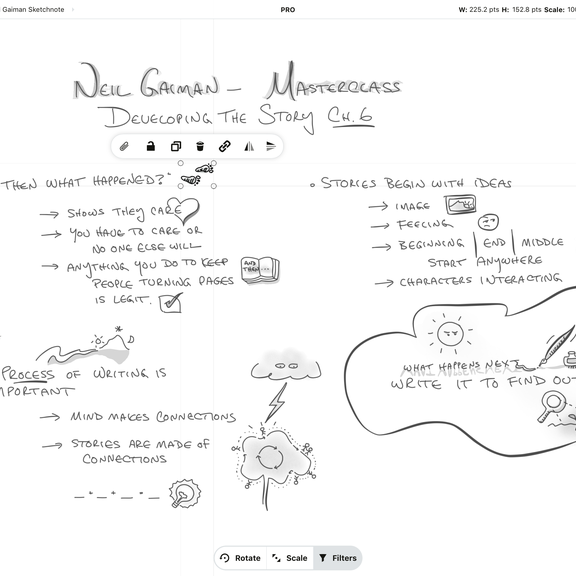 Gaiman Sketchnote
PRO
W: 225.2 pts H: 152.8 pts Scale: 100
NEIL GAIMAN — MASTERCLASS
DEVELOPING THE STORY CH. 6
THEN WHAT HAPPENED?"
→ SHOWS THEY CARE
→ YOU HAVE TO CARE OR
NO ONE ELSE WILL
→ ANYTHING YOU DO TO KEEP
PEOPLE TURNING PAGES
IS LEGIT.
AND THEN...
STORIES BEGIN WITH IDEAS
→ IMAGE
→ FEELING
→ BEGINNING | END | MIDDLE
START ANYWHERE
→ CHARACTERS INTERACTING
PROCESS OF WRITING IS
IMPORTANT
→ MIND MAKES CONNECTIONS
→ STORIES ARE MADE OF
CONNECTIONS
WHAT HAPPENS NEXT
WRITE IT TO FIND OUT
Rotate
Scale
Filters